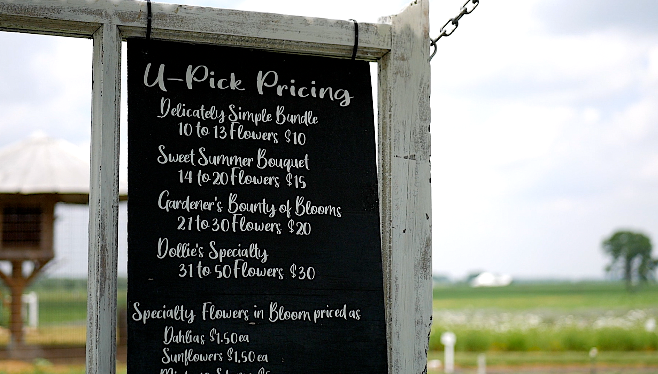 U-Pick Pricing
Delicately Simple Bundle
10 to 13 Flowers $10
Sweet Summer Bouquet
14 to 20 Flowers $15
Gardener's Bounty of Blooms
21 to 30 Flowers $20
Dollie's Specialty
31 to 50 Flowers $30
Specialty Flowers in Bloom priced as
Dahlias $1.50 ea
Sunflowers $1.50 ea